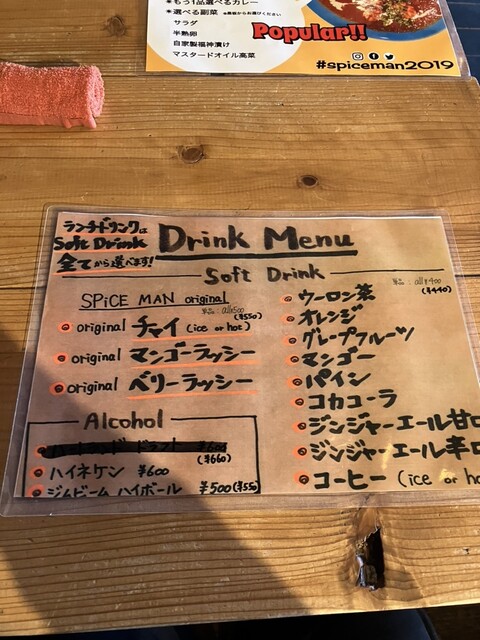 もう1品選べるカレー
選べる副菜 ※黒板からお選びください
サラダ
半熟卵
自家製福神漬け
マスタードオイル高菜
Popular!!
#spiceman2019
ランチドリンクは
Soft Drink
全てから選べます!
Drink Menu
Soft Drink
SPiCE MAN original
単品:all¥500
(¥550)
original チャイ (ice or hot)
original マンゴーラッシー
original ベリーラッシー
Alcohol
ハートランド ドラフト ¥600
(¥660)
ハイネケン ¥600
ジムビーム ハイボール ¥500(¥550)
単品:all¥400
(¥440)
ウーロン茶
オレンジ
グレープフルーツ
マンゴー
パイン
コカコーラ
ジンジャーエール甘口
ジンジャーエール辛口
コーヒー (ice or ho